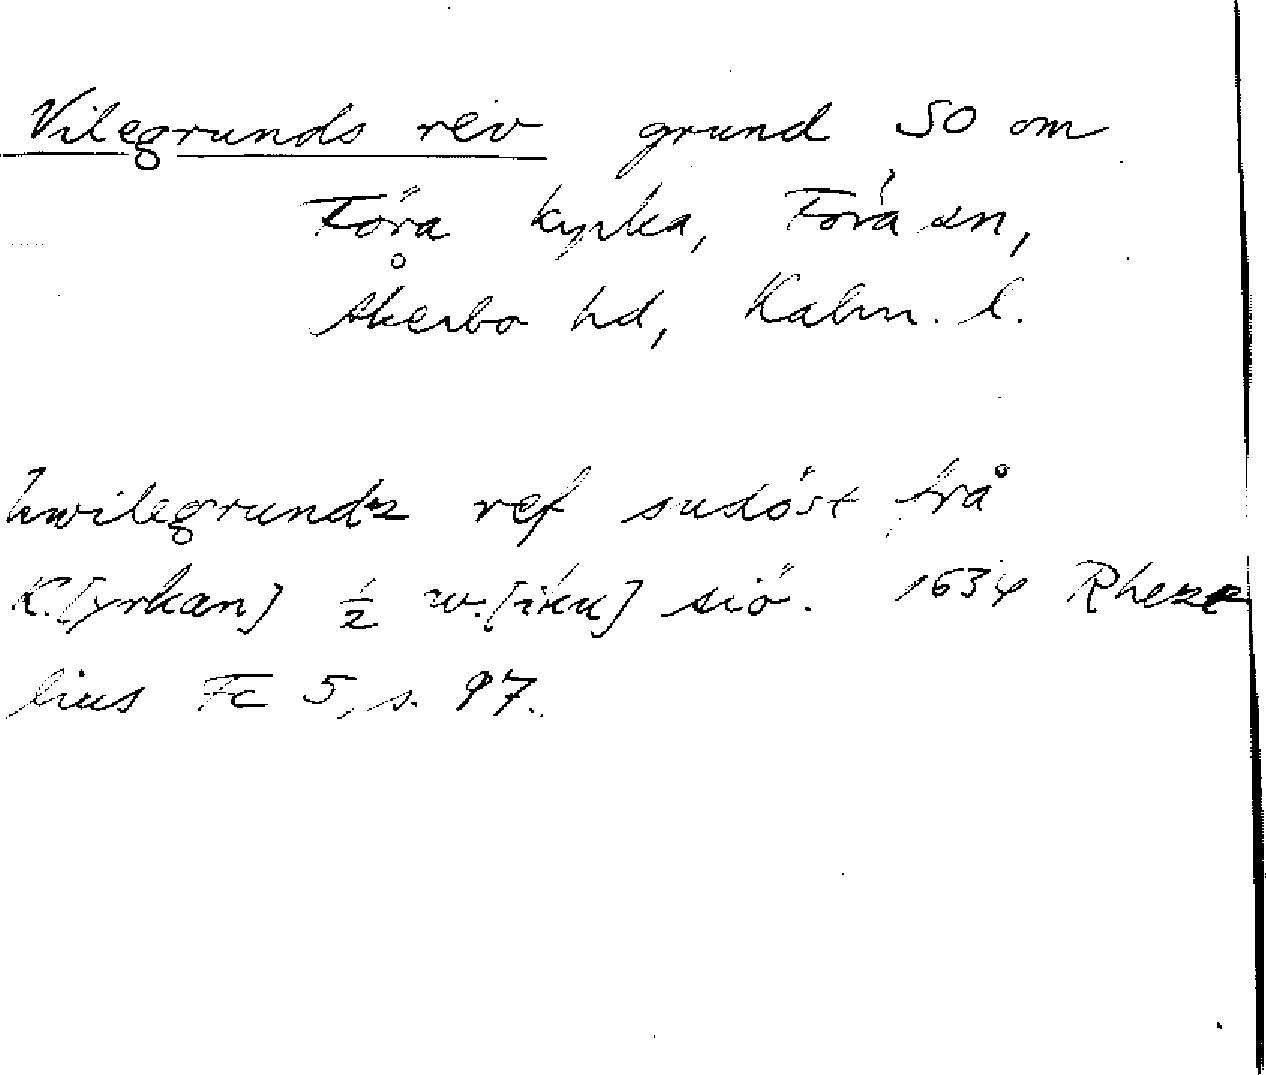 Vilegrunds rev grund SO om
Föra kyrka, Föra sn,
Åkerbo hd, Kalm. l.
hwilegrundz ref sudöst frå
K.[yrkan] ½ w.[iku] siö. 1634 Rheze
lius Fc 5, s. 97.